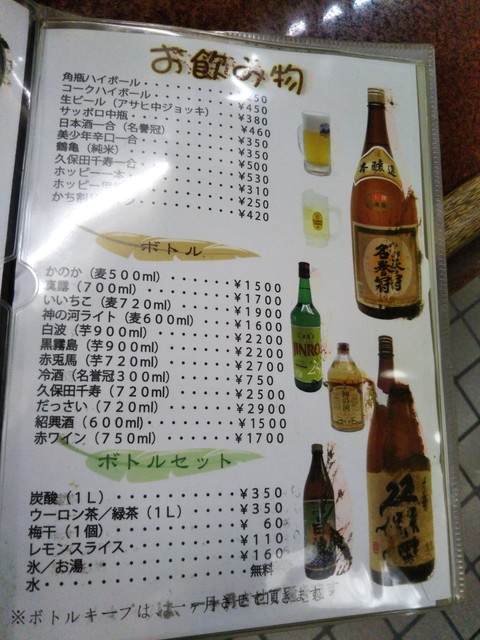 お飲み物
角瓶ハイボール
コークハイボール ¥450
生ビール（アサヒ中ジョッキ） ¥380
サッポロ中瓶 ¥460
日本酒一合（名誉冠） ¥350
美少年辛口一合 ¥350
鶴亀（純米） ¥500
久保田千寿一合 ¥530
ホッピー ¥310
ホッピー ¥250
かち割り ¥420
ボトル
かのか（麦500ml） ¥1500
真露（700ml） ¥1700
いいちこ（麦720ml） ¥1900
神の河ライト（麦600ml） ¥1600
白波（芋900ml） ¥2200
黒霧島（芋900ml） ¥2200
赤兎馬（芋720ml） ¥2700
冷酒（名誉冠300ml） ¥750
久保田千寿（720ml） ¥2500
だっさい（720ml） ¥2900
紹興酒（600ml） ¥1500
赤ワイン（750ml） ¥1700
ボトルセット
炭酸（1L） ¥350
ウーロン茶／緑茶（1L） ¥350
梅干（1個） ¥60
レモンスライス ¥110
氷／お湯 ¥160
水 無料
※ボトルキープは
名誉冠
JINRO
神の河
久保田